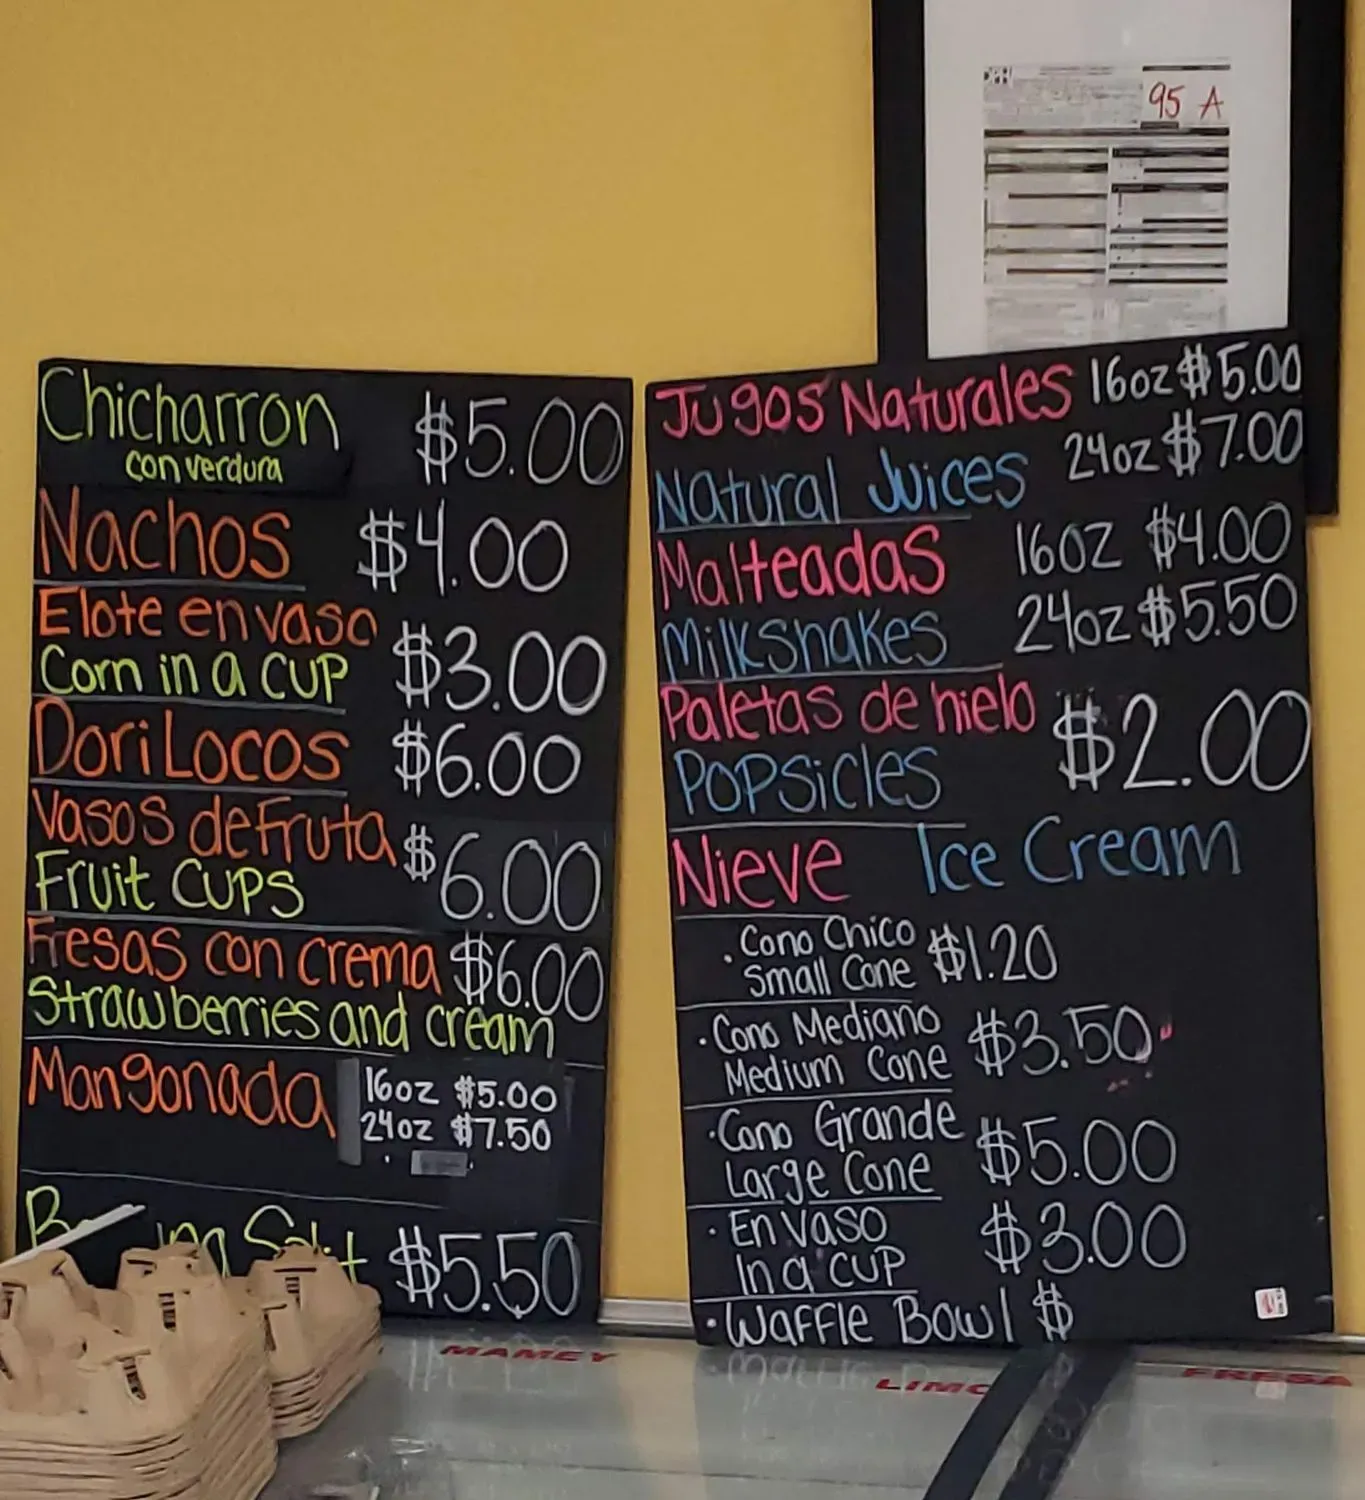 95 A
Chicharron $5.00
con verdura
Nachos $4.00
Elote en vaso
Corn in a cup $3.00
Dori Locos $6.00
Vasos de Fruta
Fruit Cups $6.00
Fresas con crema $6.00
Strawberries and cream
Mangonada 16oz $5.00
24oz $7.50
$5.50
Jugos Naturales 16oz $5.00
Natural Juices 24oz $7.00
Malteadas 16oz $4.00
Milkshakes 24oz $5.50
Paletas de hielo
Popsicles $2.00
Nieve Ice Cream
· Cono Chico
Small Cone $1.20
· Cono Mediano
Medium Cone $3.50
· Cono Grande
Large Cone $5.00
· En vaso
In a cup $3.00
· Waffle Bowl $
MAMEY
FRESA